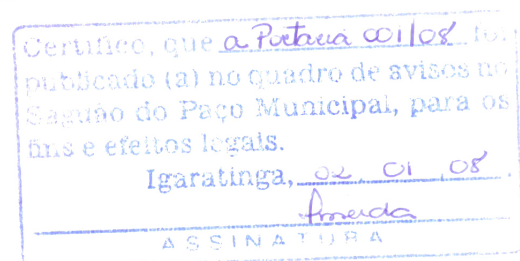 Certifico, que a Portaria 001/08 foi
publicado (a) no quadro de avisos no
Saguão do Paço Municipal, para os
fins e efeitos legais.
Igaratinga, 02 01 08.
Almeida
ASSINATURA